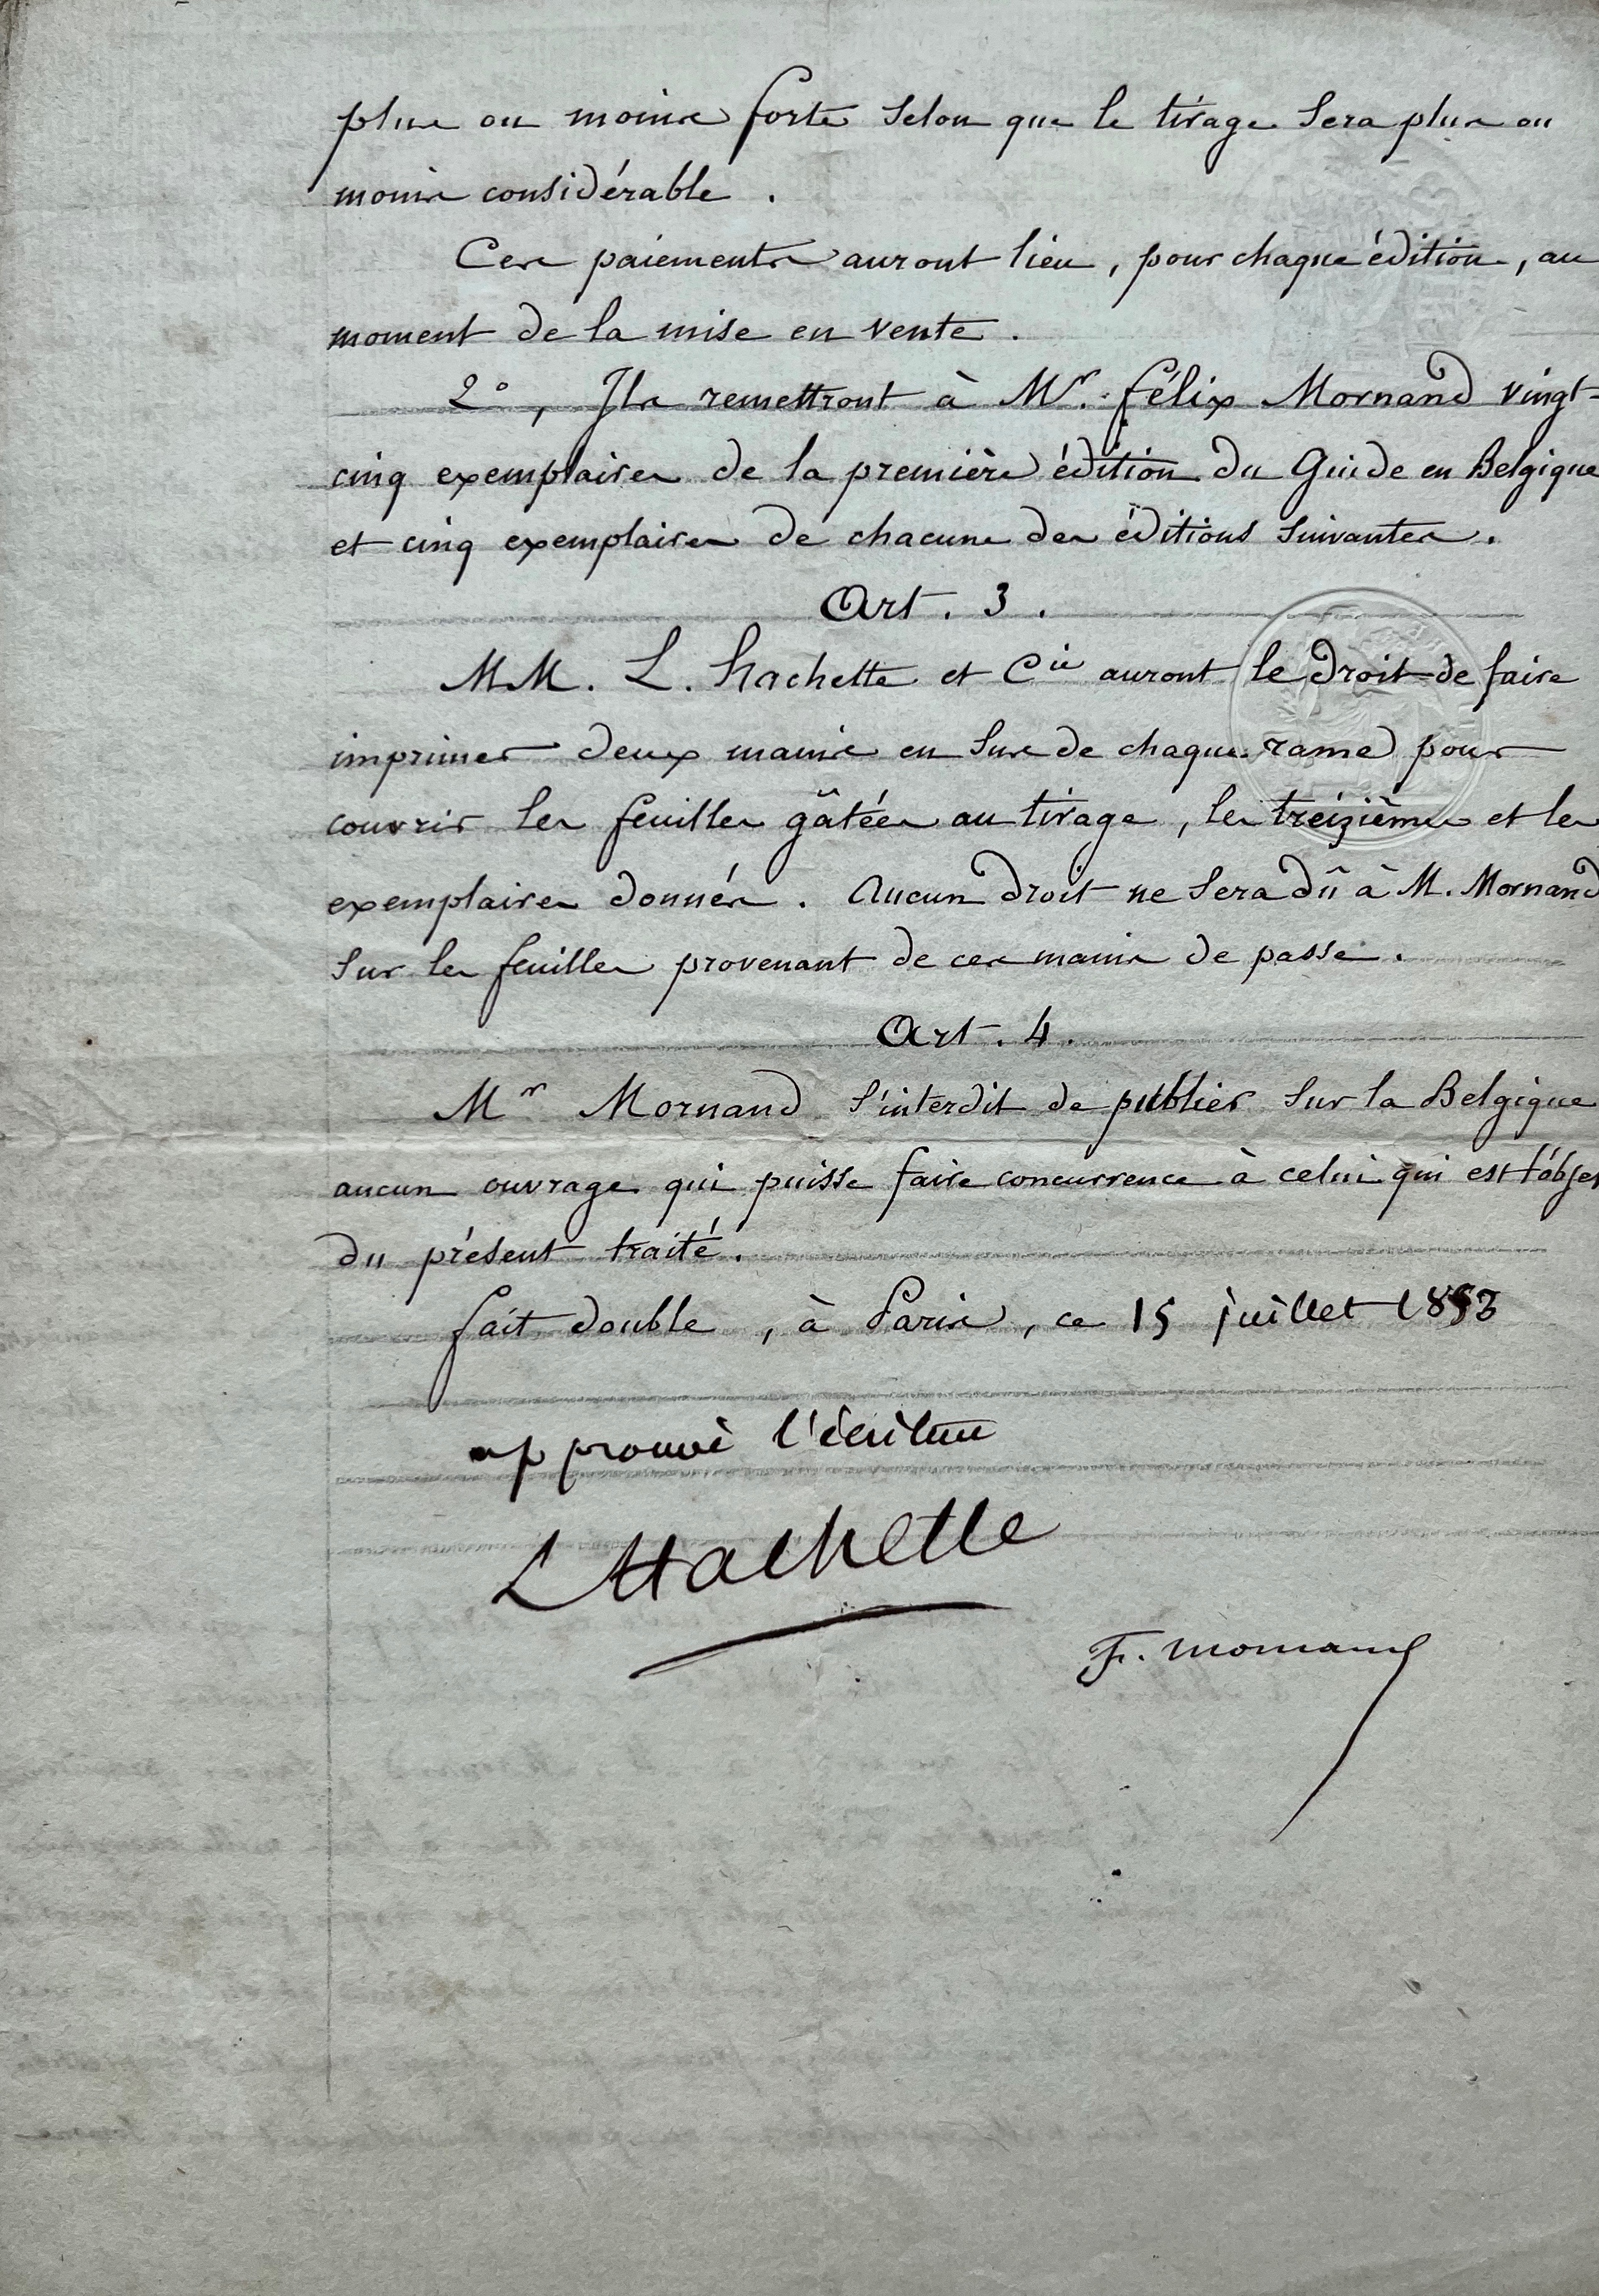 plus ou moins forte selon que le tirage sera plus ou
moins considérable.
Ces paiements auront lieu, pour chaque édition, au
moment de la mise en vente.
2°, Ils remettront à Mr. félix Mornand vingt-
cinq exemplaires de la première édition du Guide en Belgique
et cinq exemplaires de chacune des éditions suivantes.
Art. 3.
MM. L. hachette et Cie auront le droit de faire
imprimer deux mains en sus de chaque rame pour
couvrir les feuilles gâtées au tirage, les treizièmes et les
exemplaires donnés. Aucun droit ne sera dû à M. Mornand
sur les feuilles provenant de ces mains de passe.
Art. 4.
Mr Mornand s'interdit de publier sur la Belgique
aucun ouvrage qui puisse faire concurrence à celui qui est l'objet
du présent traité.
fait double, à Paris, ce 15 juillet 1853
approuvé l'écriture
L Hachette
F. Mornand